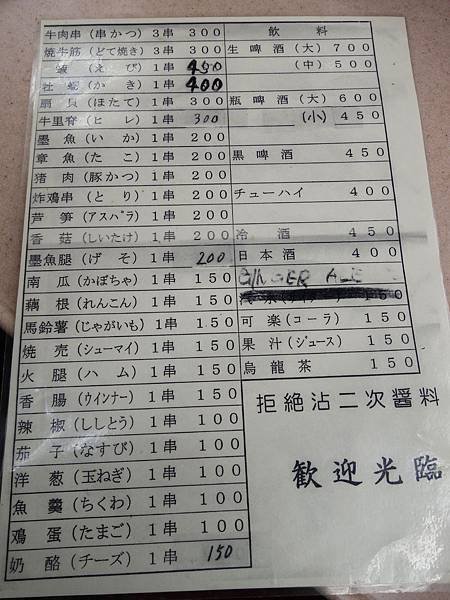 牛肉串（串かつ）3串 300
焼牛筋（どて焼き）3串 300
（えび）1串 450
牡蠣（かき）1串 400
扇貝（ほたて）1串 300
牛里脊（ヒレ）1串 300
墨魚（いか）1串 200
章魚（たこ）1串 200
猪肉（豚かつ）1串 200
炸鶏串（とり）1串 200
芦笋（アスパラ）1串 200
香菇（しいたけ）1串 200
墨魚腿（げそ）1串 200
南瓜（かぼちゃ）1串 150
藕根（れんこん）1串 150
馬鈴薯（じゃがいも）1串 150
焼売（シューマイ）1串 150
火腿（ハム）1串 150
香腸（ウインナー）1串 150
辣椒（ししとう）1串 100
茄子（なすび）1串 100
洋葱（玉ねぎ）1串 100
魚羹（ちくわ）1串 100
鶏蛋（たまご）1串 100
奶酪（チーズ）1串 150
飲料
生啤酒（大）700
（中）500
瓶啤酒（大）600
（小）450
黒啤酒 450
チューハイ 400
冷酒 450
日本酒 400
GINGER ALE
150
可楽（コーラ）150
果汁（ジュース）150
烏龍茶 150
拒絶沾二次醤料
歓迎光臨